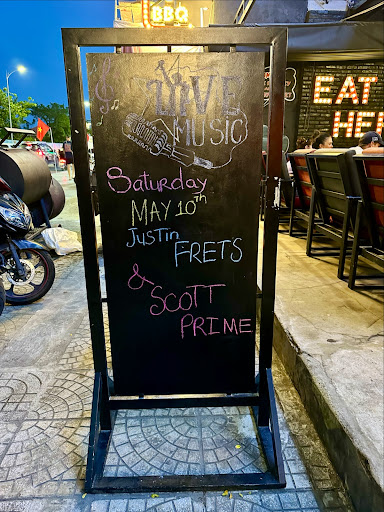 BBQ
LIVE
MUSIC
Saturday
MAY 10th
JUSTIN
FRETS
&
SCOTT
PRIME
EAT
HE